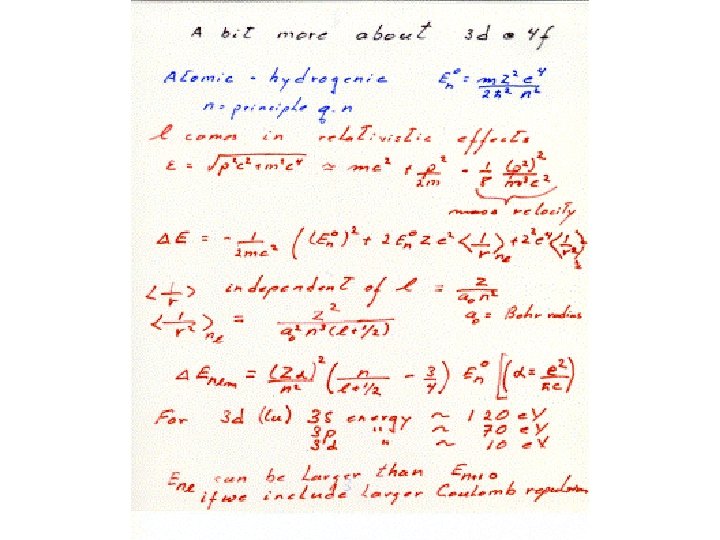 A bit more about 3d • 4f
Atomic - hydrogenic E_n^0 = mZ²e⁴ / 2ħ² n²
n = principle q.n
l comes in relativistic effects
ε = √(p²c² + m²c⁴) ≃ mc² + p²/2m - 1/8 (p²)²/m³c²
velocity
ΔE = - 1/2mc² ((E_n^0)² + 2E_n^0 Ze² <1/r>_nl + Z²e⁴ <1/r²>)
<1/r> independent of l = Z/a₀n²
<1/r²>_nl = Z² / a₀² n³(l+1/2) a₀ = Bohr radius
ΔE_nlm = (Zα)²/n² (n/(l+1/2) - 3/4) E_n^0 [(α = e²/ħc)
For 3d (Cu) 3s energy ~ 120 eV
3p " ~ 70 eV
3d " ~ 10 eV
E_nl can be larger than
if we include larger Coulomb repulsion